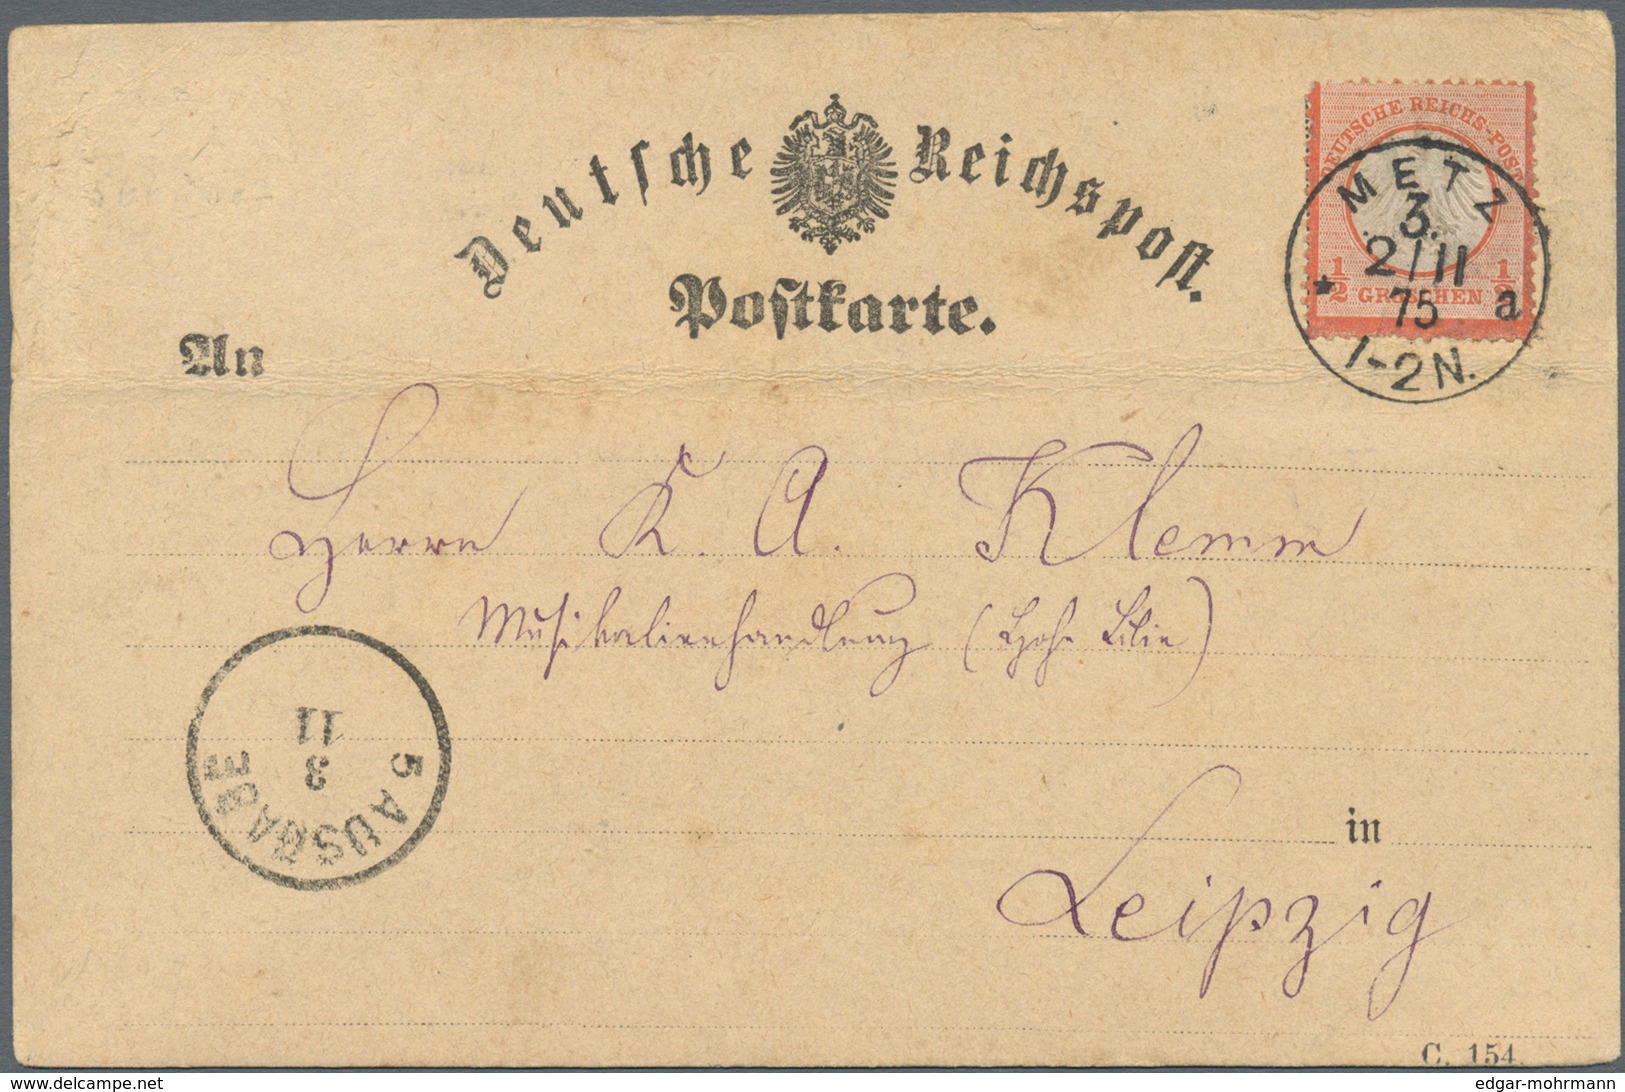 Deutsche Reichspost.
Postkarte.
DEUTSCHE REICHS-POST
1/2 GROSCHEN 1/2
METZ
3.
2/11
75
* a
1-2N.
An
Herrn K. A. Klemm
Musikalienhandlung (Hohe Lilie)
5 AUSGABE
3
11
in
Leipzig
C. 154.
www.delcampe.net
edgar-mohrmann